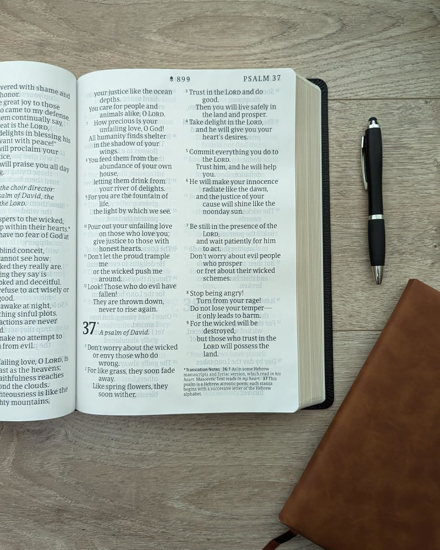 vered with shame and
honor.
e great joy to those
o came to my defense.
em continually say,
eat is the LORD,
delights in blessing his
vant with peace!"
will proclaim your
tice,
will praise you all day
g.
the choir director:
salm of David, the
the LORD.
spers to the wicked,
p within their hearts.*
have no fear of God at
blind conceit,
cannot see how
ked they really are
ing they say is
oked and deceitful.
refuse to act wisely or
good.
awake at night,
tching sinful plots.
actions are never
d.
make no attempt to
from evil.
failing love, O LORD, is
ast as the heavens;
aithfulness reaches
ond the clouds.
teousness is like the
hty mountains,
899
PSALM 37
your justice like the ocean
depths.
You care for people and
animals alike, O LORD.
7 How precious is your
unfailing love, O God!
All humanity finds shelter
in the shadow of your
wings.
8 You feed them from the
abundance of your own
house,
letting them drink from
your river of delights.
9 For you are the fountain of
life,
the light by which we see.
10 Pour out your unfailing love
on those who love you;
give justice to those with
honest hearts.
11 Don't let the proud trample
me
or the wicked push me
around.
12 Look! Those who do evil have
fallen!
They are thrown down,
never to rise again.
37*
A psalm of David.
1 Don't worry about the wicked
or envy those who do
wrong.
2 For like grass, they soon fade
away.
Like spring flowers, they
soon wither.
3 Trust in the LORD and do
good.
Then you will live safely in
the land and prosper.
4 Take delight in the LORD,
and he will give you your
heart's desires.
5 Commit everything you do to
the LORD.
Trust him, and he will help
you.
6 He will make your innocence
radiate like the dawn,
and the justice of your
cause will shine like the
noonday sun.
7 Be still in the presence of the
LORD,
and wait patiently for him
to act.
Don't worry about evil people
who prosper
or fret about their wicked
schemes.
8 Stop being angry!
Turn from your rage!
Do not lose your temper—
it only leads to harm.
9 For the wicked will be
destroyed,
but those who trust in the
LORD will possess the
land.
*Translation Notes 36:1 As in some Hebrew
manuscripts and Syriac version, which read in his
heart. Masoretic Text reads in my heart. 37 This
psalm is a Hebrew acrostic poem; each stanza
begins with a successive letter of the Hebrew
alphabet.